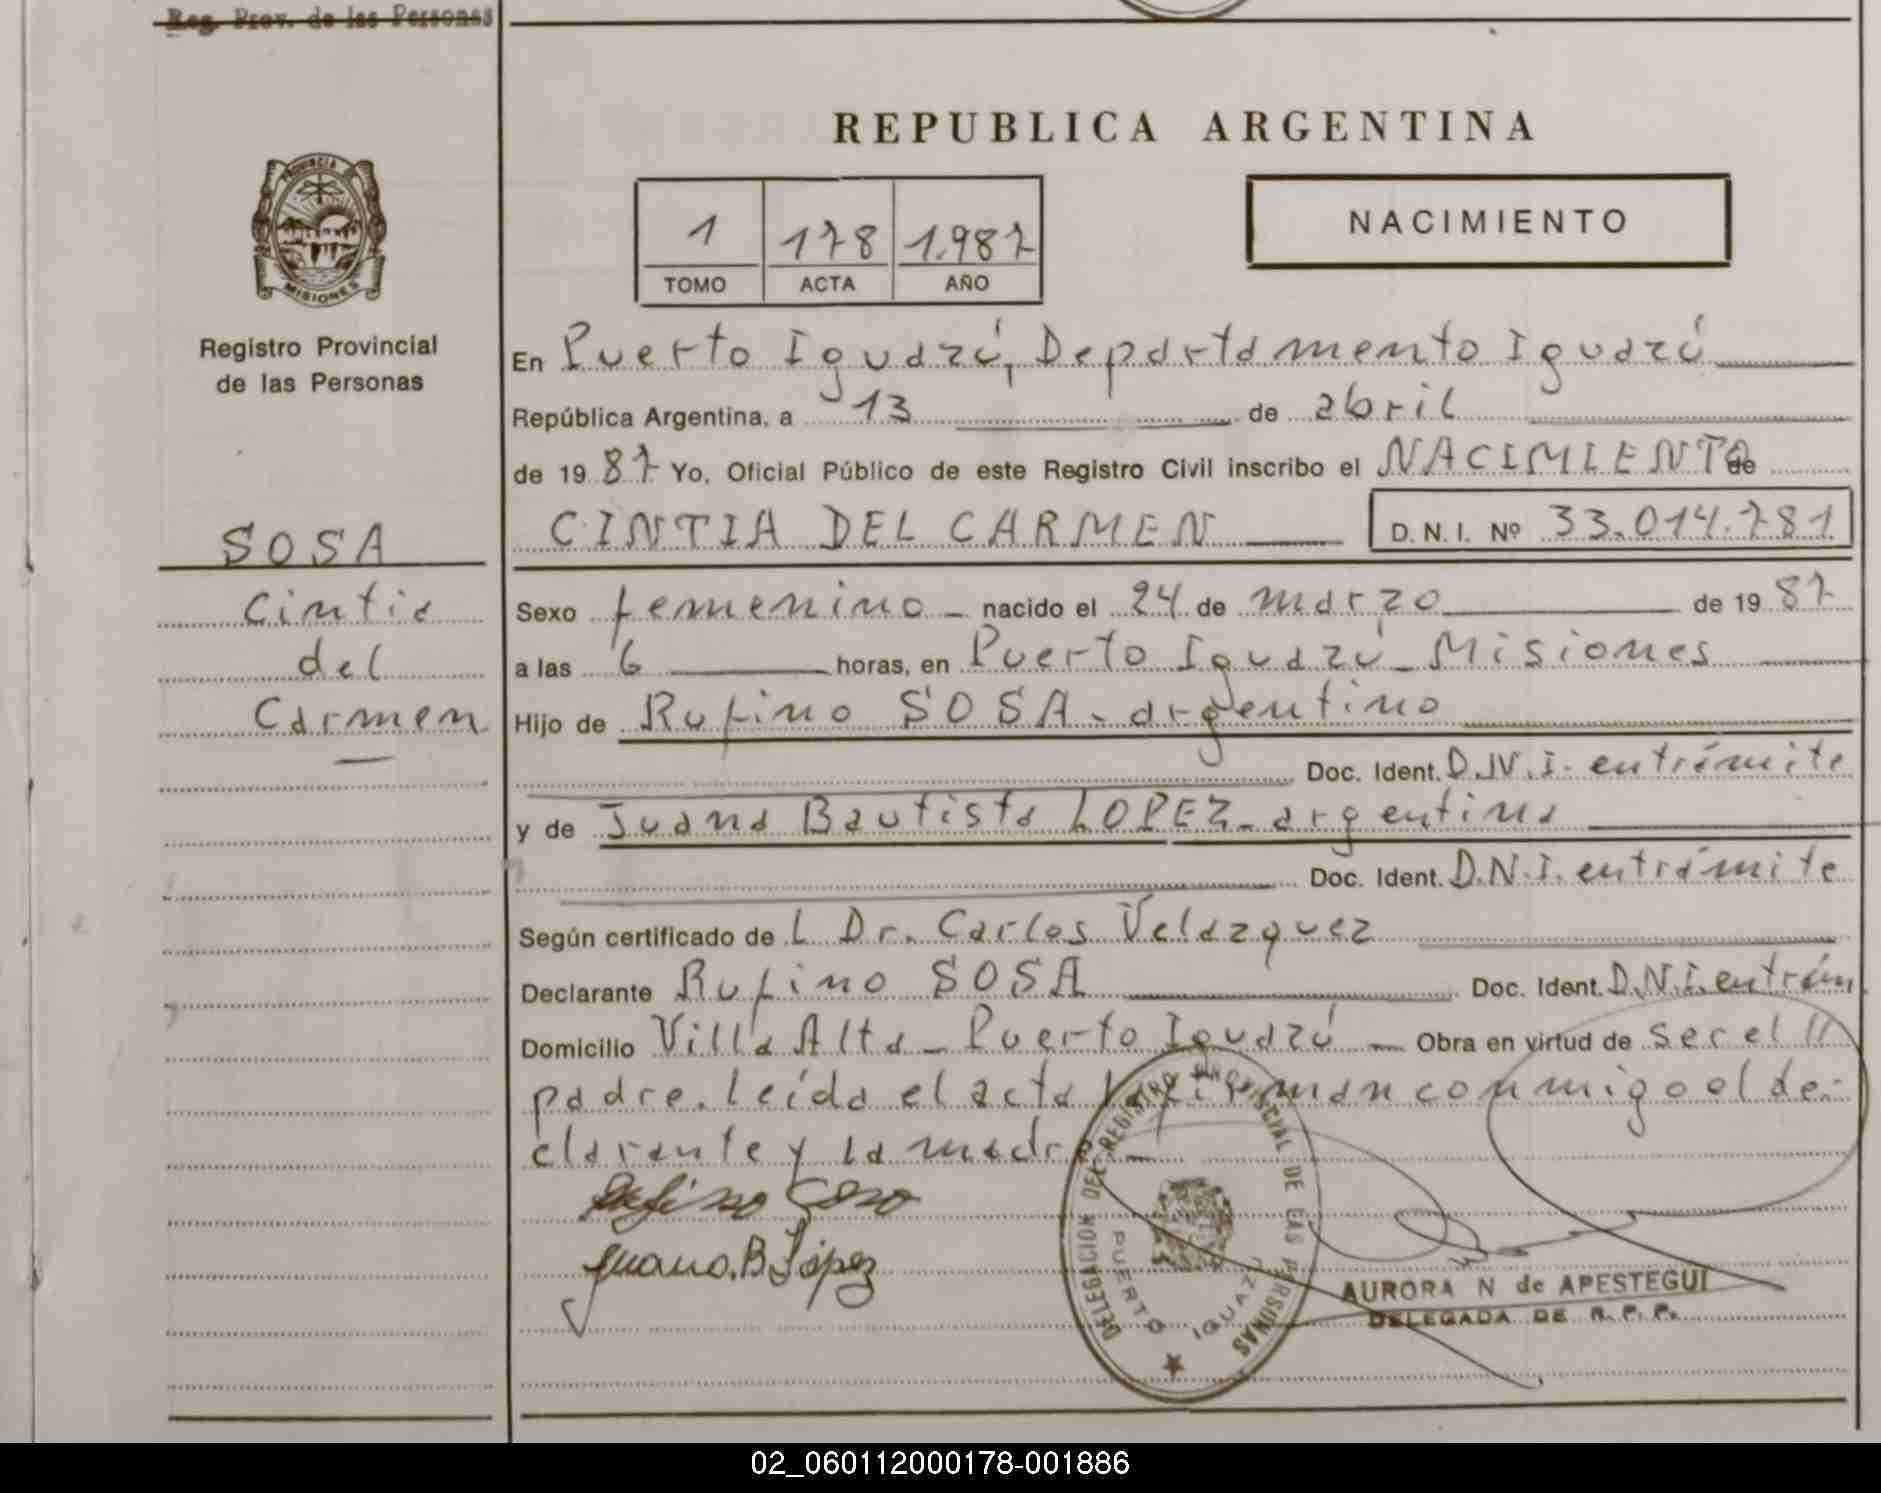 Reg. Prov. de las Personas
REPUBLICA ARGENTINA
PROVINCIA
MISIONES
Registro Provincial
de las Personas
1 178 1.987
TOMO ACTA AÑO
NACIMIENTO
En Puerto Iguazú, Departamento Iguazú
República Argentina, a 13 de abril
de 19 87 Yo, Oficial Público de este Registro Civil inscribo el NACIMIENTO de
SOSA
CINTIA DEL CARMEN D. N. I. Nº 33.014.781
Cintia
Sexo femenino nacido el 24 de marzo de 19 87
del
a las 6 horas, en Puerto Iguazú - Misiones
Carmen
Hijo de Rufino SOSA - argentino
Doc. Ident. D.N.I. en trámite
y de Juana Bautista LOPEZ - argentina
Doc. Ident. D.N.I. en trámite
Según certificado de L Dr. Carlos Velazquez
Declarante Rufino SOSA Doc. Ident. D.N.I. en trám
Domicilio Villa Alta - Puerto Iguazú - Obra en virtud de ser el
padre. Leída el acta la firman conmigo el de-
clarante y la madre
Rufino Soso
Juana. B López
DELEGACION DEL REGISTRO PROVINCIAL DE LAS PERSONAS
PUERTO IGUAZU
AURORA N de APESTEGUI
DELEGADA DE R. P. P.
02_060112000178-001886